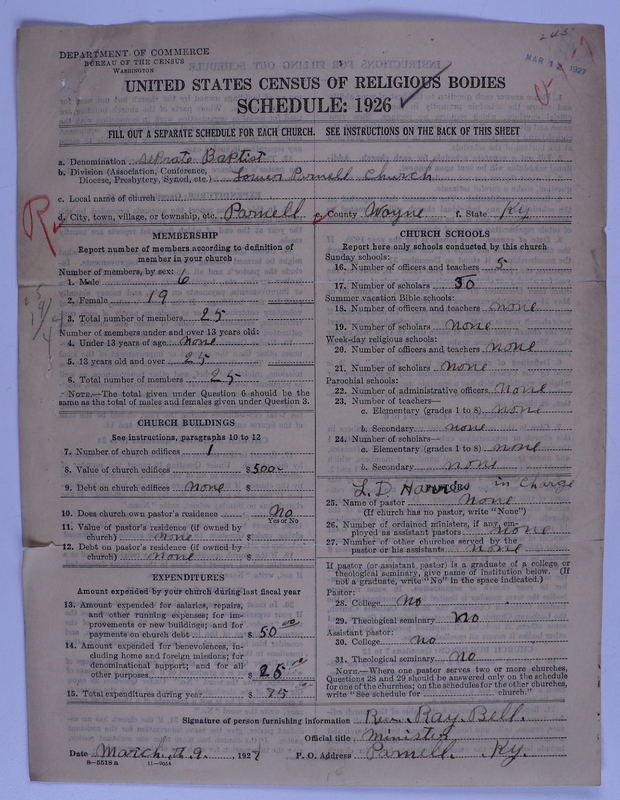 243
DEPARTMENT OF COMMERCE
BUREAU OF THE CENSUS
WASHINGTON
MAR 12 1927
UNITED STATES CENSUS OF RELIGIOUS BODIES
SCHEDULE: 1926
FILL OUT A SEPARATE SCHEDULE FOR EACH CHURCH. SEE INSTRUCTIONS ON THE BACK OF THIS SHEET
a. Denomination Seprate Baptist
b. Division (Association, Conference,
Diocese, Presbytery, Synod, etc.) Lower Parnell Church
c. Local name of church
R
d. City, town, village, or township, etc. Parnell e. County Wayne f. State Ky
MEMBERSHIP
Report number of members according to definition of
member in your church
Number of members, by sex:
1. Male 6
2. Female 19
3. Total number of members 25
Number of members under and over 13 years old:
4. Under 13 years of age none
5. 13 years old and over 25
6. Total number of members 25
NOTE.—The total given under Question 6 should be the
same as the total of males and females given under Question 3.
CHURCH BUILDINGS
See instructions, paragraphs 10 to 12
7. Number of church edifices 1
8. Value of church edifices $500-
9. Debt on church edifices none $
10. Does church own pastor's residence No
Yes or No
11. Value of pastor's residence (if owned by
church) none $
12. Debt on pastor's residence (if owned by
church) none $
EXPENDITURES
Amount expended by your church during last fiscal year
13. Amount expended for salaries, repairs,
and other running expenses; for im-
provements or new buildings; and for
payments on church debt $ 50 00
14. Amount expended for benevolences, in-
cluding home and foreign missions; for
denominational support; and for all
other purposes $ 25
15. Total expenditures during year $ 75
CHURCH SCHOOLS
Report here only schools conducted by this church
Sunday schools:
16. Number of officers and teachers 5
17. Number of scholars 30
Summer vacation Bible schools:
18. Number of officers and teachers none
19. Number of scholars none
Week-day religious schools:
20. Number of officers and teachers none
21. Number of scholars none
Parochial schools:
22. Number of administrative officers none
23. Number of teachers—
a. Elementary (grades 1 to 8) none
b. Secondary none
24. Number of scholars—
a. Elementary (grades 1 to 8) none
b. Secondary none
L. D. in Charge
25. Name of pastor none
(If church has no pastor, write "None")
26. Number of ordained ministers, if any, em-
ployed as assistant pastors none
27. Number of other churches served by the
pastor or his assistants none
If pastor (or assistant pastor) is a graduate of a college or
theological seminary, give name of institution below. (If
not a graduate, write "No" in the space indicated.)
Pastor:
28. College No
29. Theological seminary No
Assistant pastor:
30. College No
31. Theological seminary No
NOTE.—Where one pastor serves two or more churches,
Questions 28 and 29 should be answered only on the schedule
for one of the churches; on the schedules for the other churches,
write "See schedule for church."
Signature of person furnishing information Rev. Ray Bell.
Official title Minister
Date March 9, 1927 P. O. Address Parnell. Ky.
8—5518a 11—9054